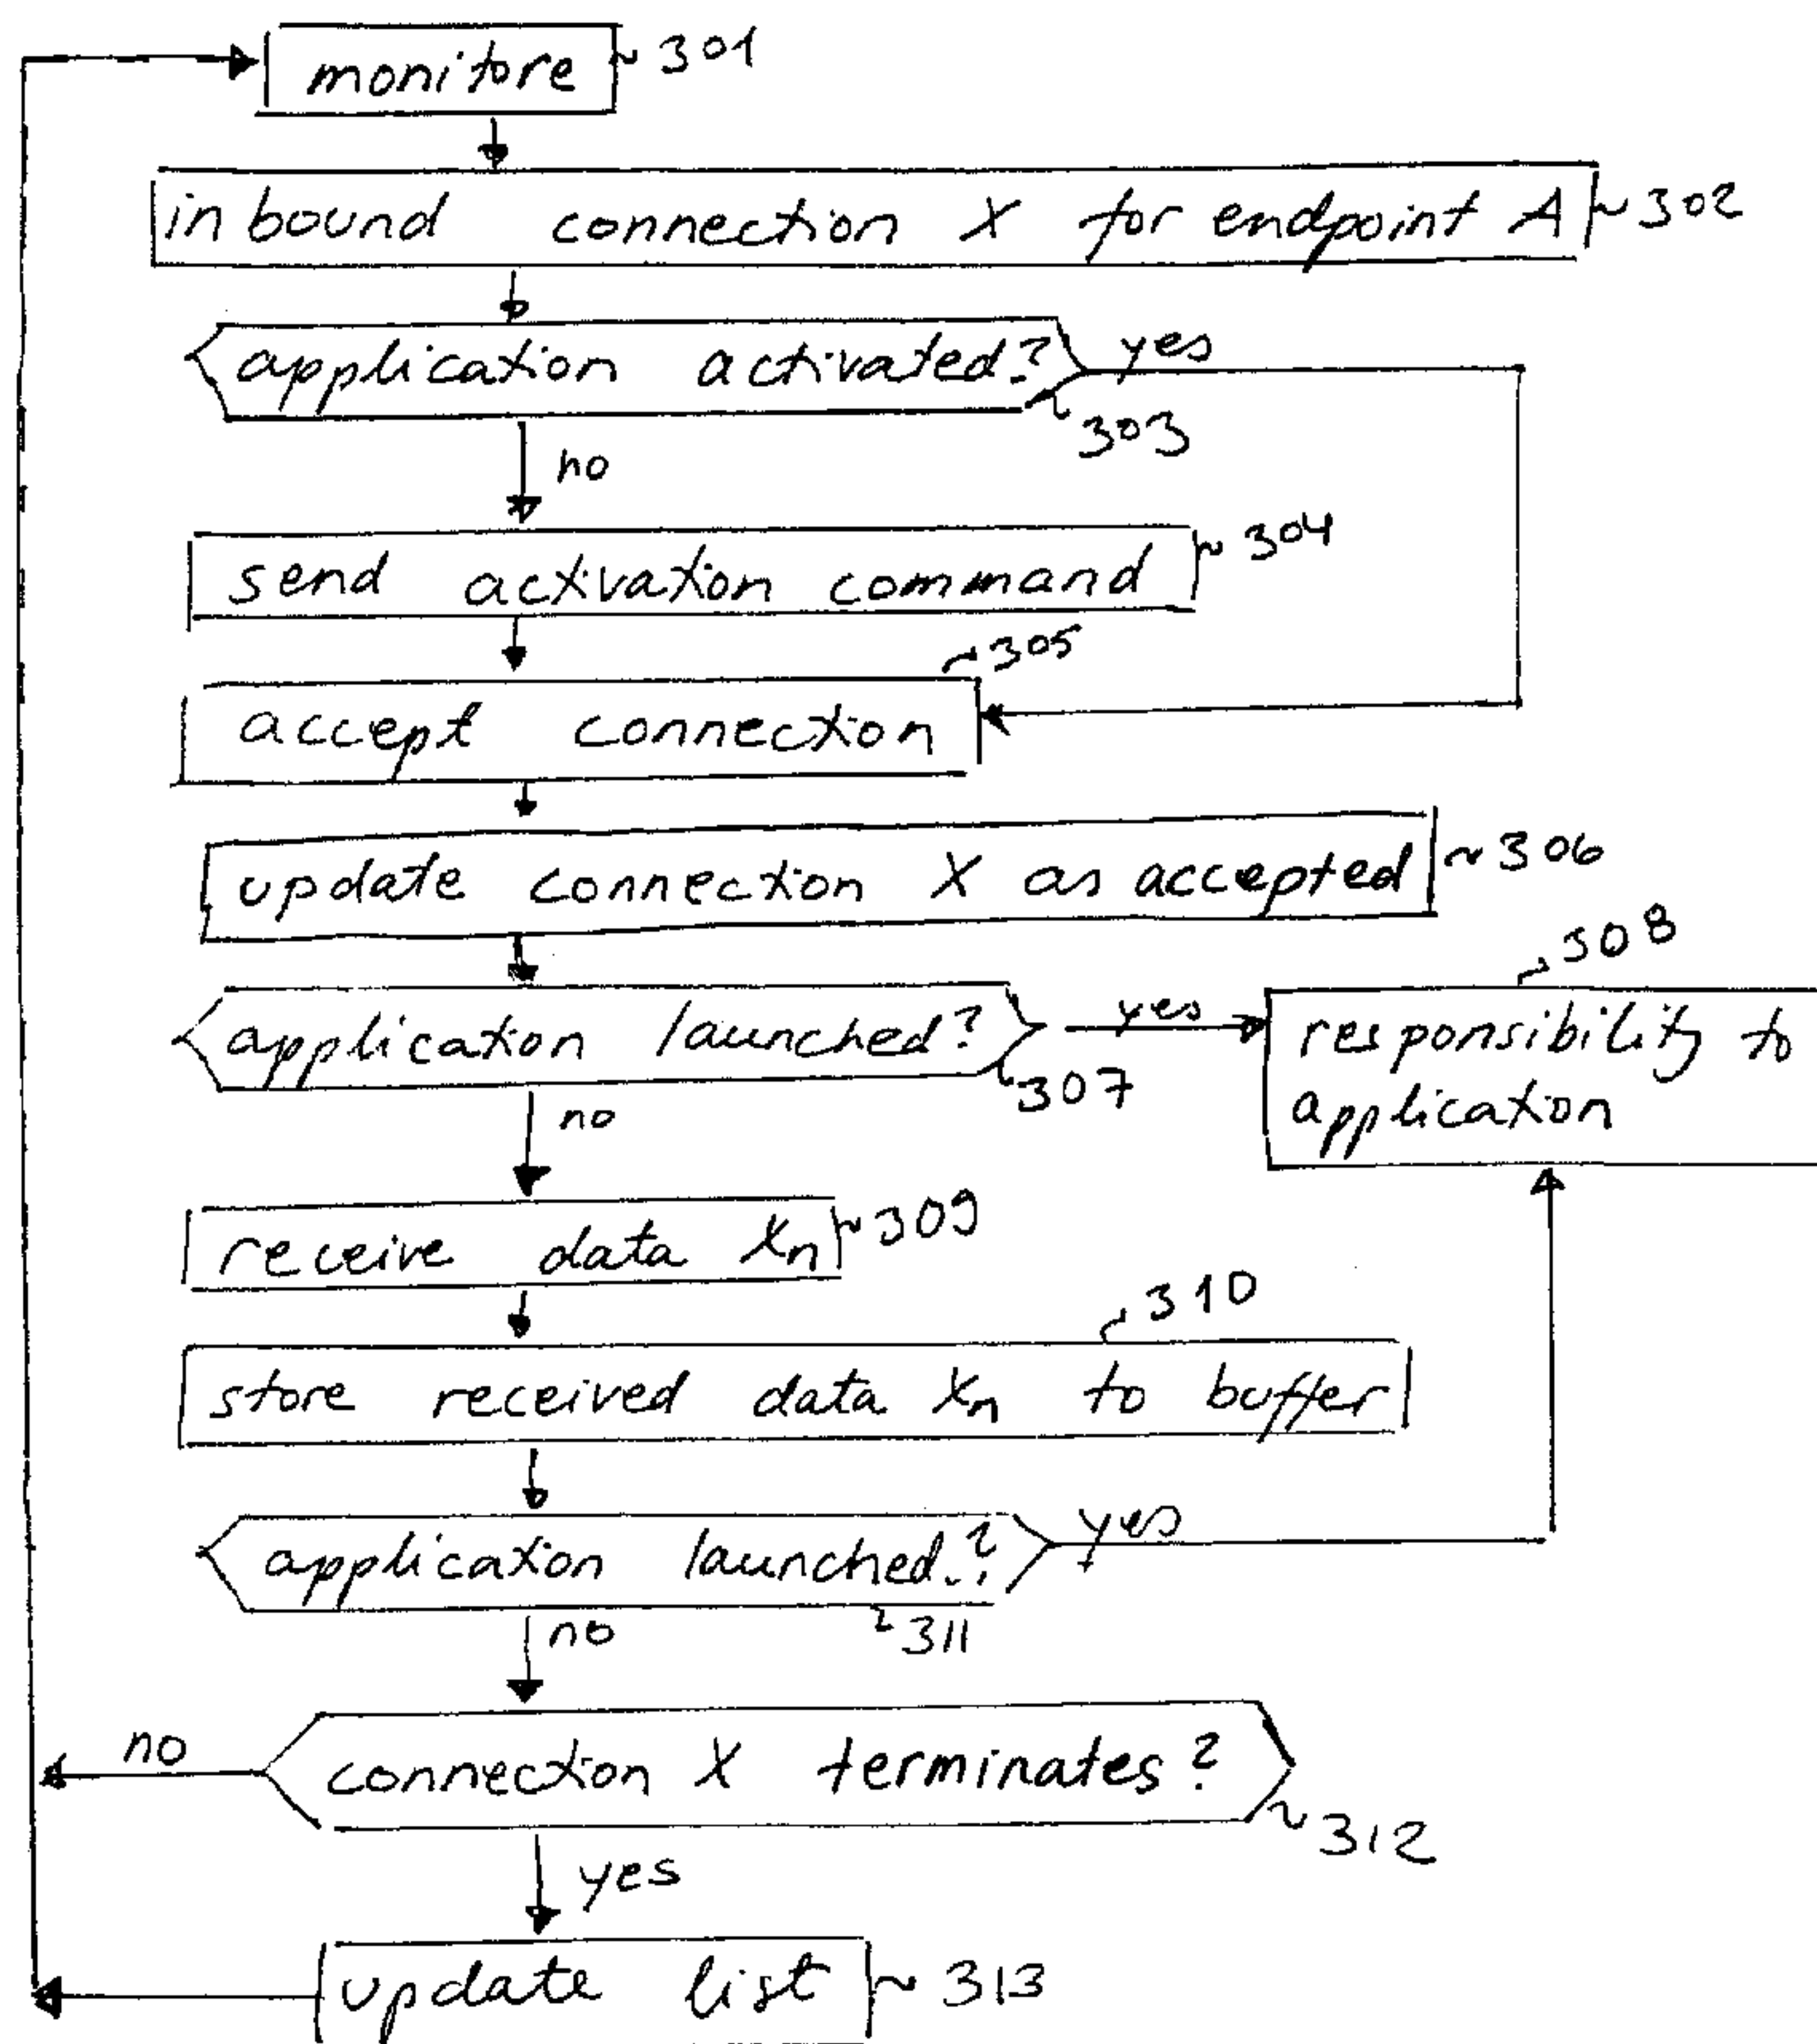 monitore ~ 301
inbound connection X for endpoint A ~ 302
application activated? yes
303
no
send activation command ~ 304
~ 305
accept connection
update connection X as accepted ~ 306
~ 308
application launched? yes
~ 307
responsibility to
application
no
receive data Xn ~ 309
~ 310
store received data Xn to buffer
application launched? yes
no ~ 311
no connection X terminates?
~ 312
yes
update list ~ 313